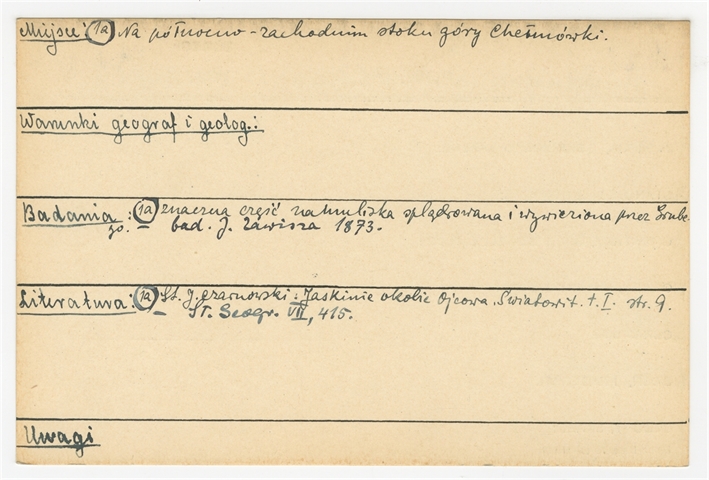 Miejsce: 1a Na północno-zachodnim stoku góry Chełmówki.
Warunki geograf i geolog.:
Badania: 1a znaczna część namuliska splądrowana i wywieziona przez Grube
go. bad. J. Zawisza 1873.
Literatura: 1a St. J. Czarnowski: Jaskinie okolic Ojcowa. Światowit. t. I. str. 9.
Sł. Geogr. VII, 415.
Uwagi